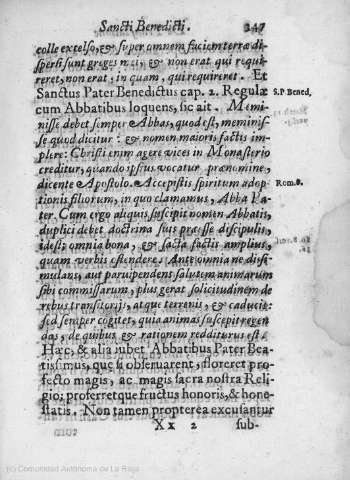 Sancti Benedicti. 347
colle excelso, & super omnem faciem terræ di-
spersi sunt greges mei, & non erat qui requi-
reret, non erat, in quam, qui requireret. Et
Sanctus Pater Benedictus cap. 2. Regulæ S.P Bened.
cum Abbatibus loquens, sic ait. Memi-
nisse debet semper Abbas, quod est, meminis-
se quod dicitur: & nomen maioris, factis im-
plere: Christi enim agere vices in Monasterio
creditur, quando ipsius vocatur prænomine,
dicente Apostolo. Accepistis spiritum adop- Rom. 8.
tionis filiorum, in quo clamamus, Abba Pa-
ter. Cum ergo aliquis suscipit nomen Abbatis,
duplici debet doctrina suis præesse discipulis,
idest, omnia bona, & sacta factis amplius,
quam verbis ostendere. Ante omnia ne dissi-
mulans, aut parvipendens salutem animarum
sibi commissarum, plus gerat solicitudinem de
rebus transitorijs, atque terrenis, & caducis:
sed semper cogitet, quia animas suscepit regen
das, de quibus & rationem redditurus est.
Hæc, & alia iubet Abbatibus Pater Bea-
tissimus, quæ si observarent, floreret pro-
fecto magis, ac magis sacra nostra Reli-
gio, proferretque fructus honoris, & hone-
statis. Non tamen propterea excusantur
Xx 2 sub-
(c) Comunidad Autónoma de La Rioja